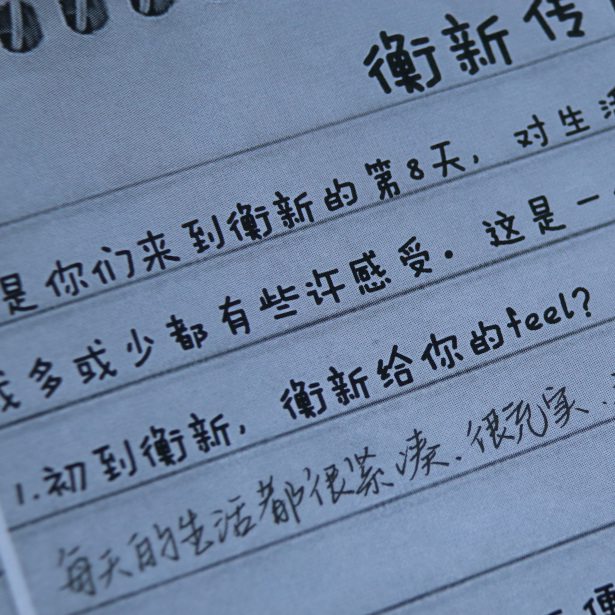 衡新传
是你们来到衡新的第8天，对生活
或多或少都有些许感受。这是一
1.初到衡新，衡新给你的feel?
每天的生活都很紧凑.很充实.
便